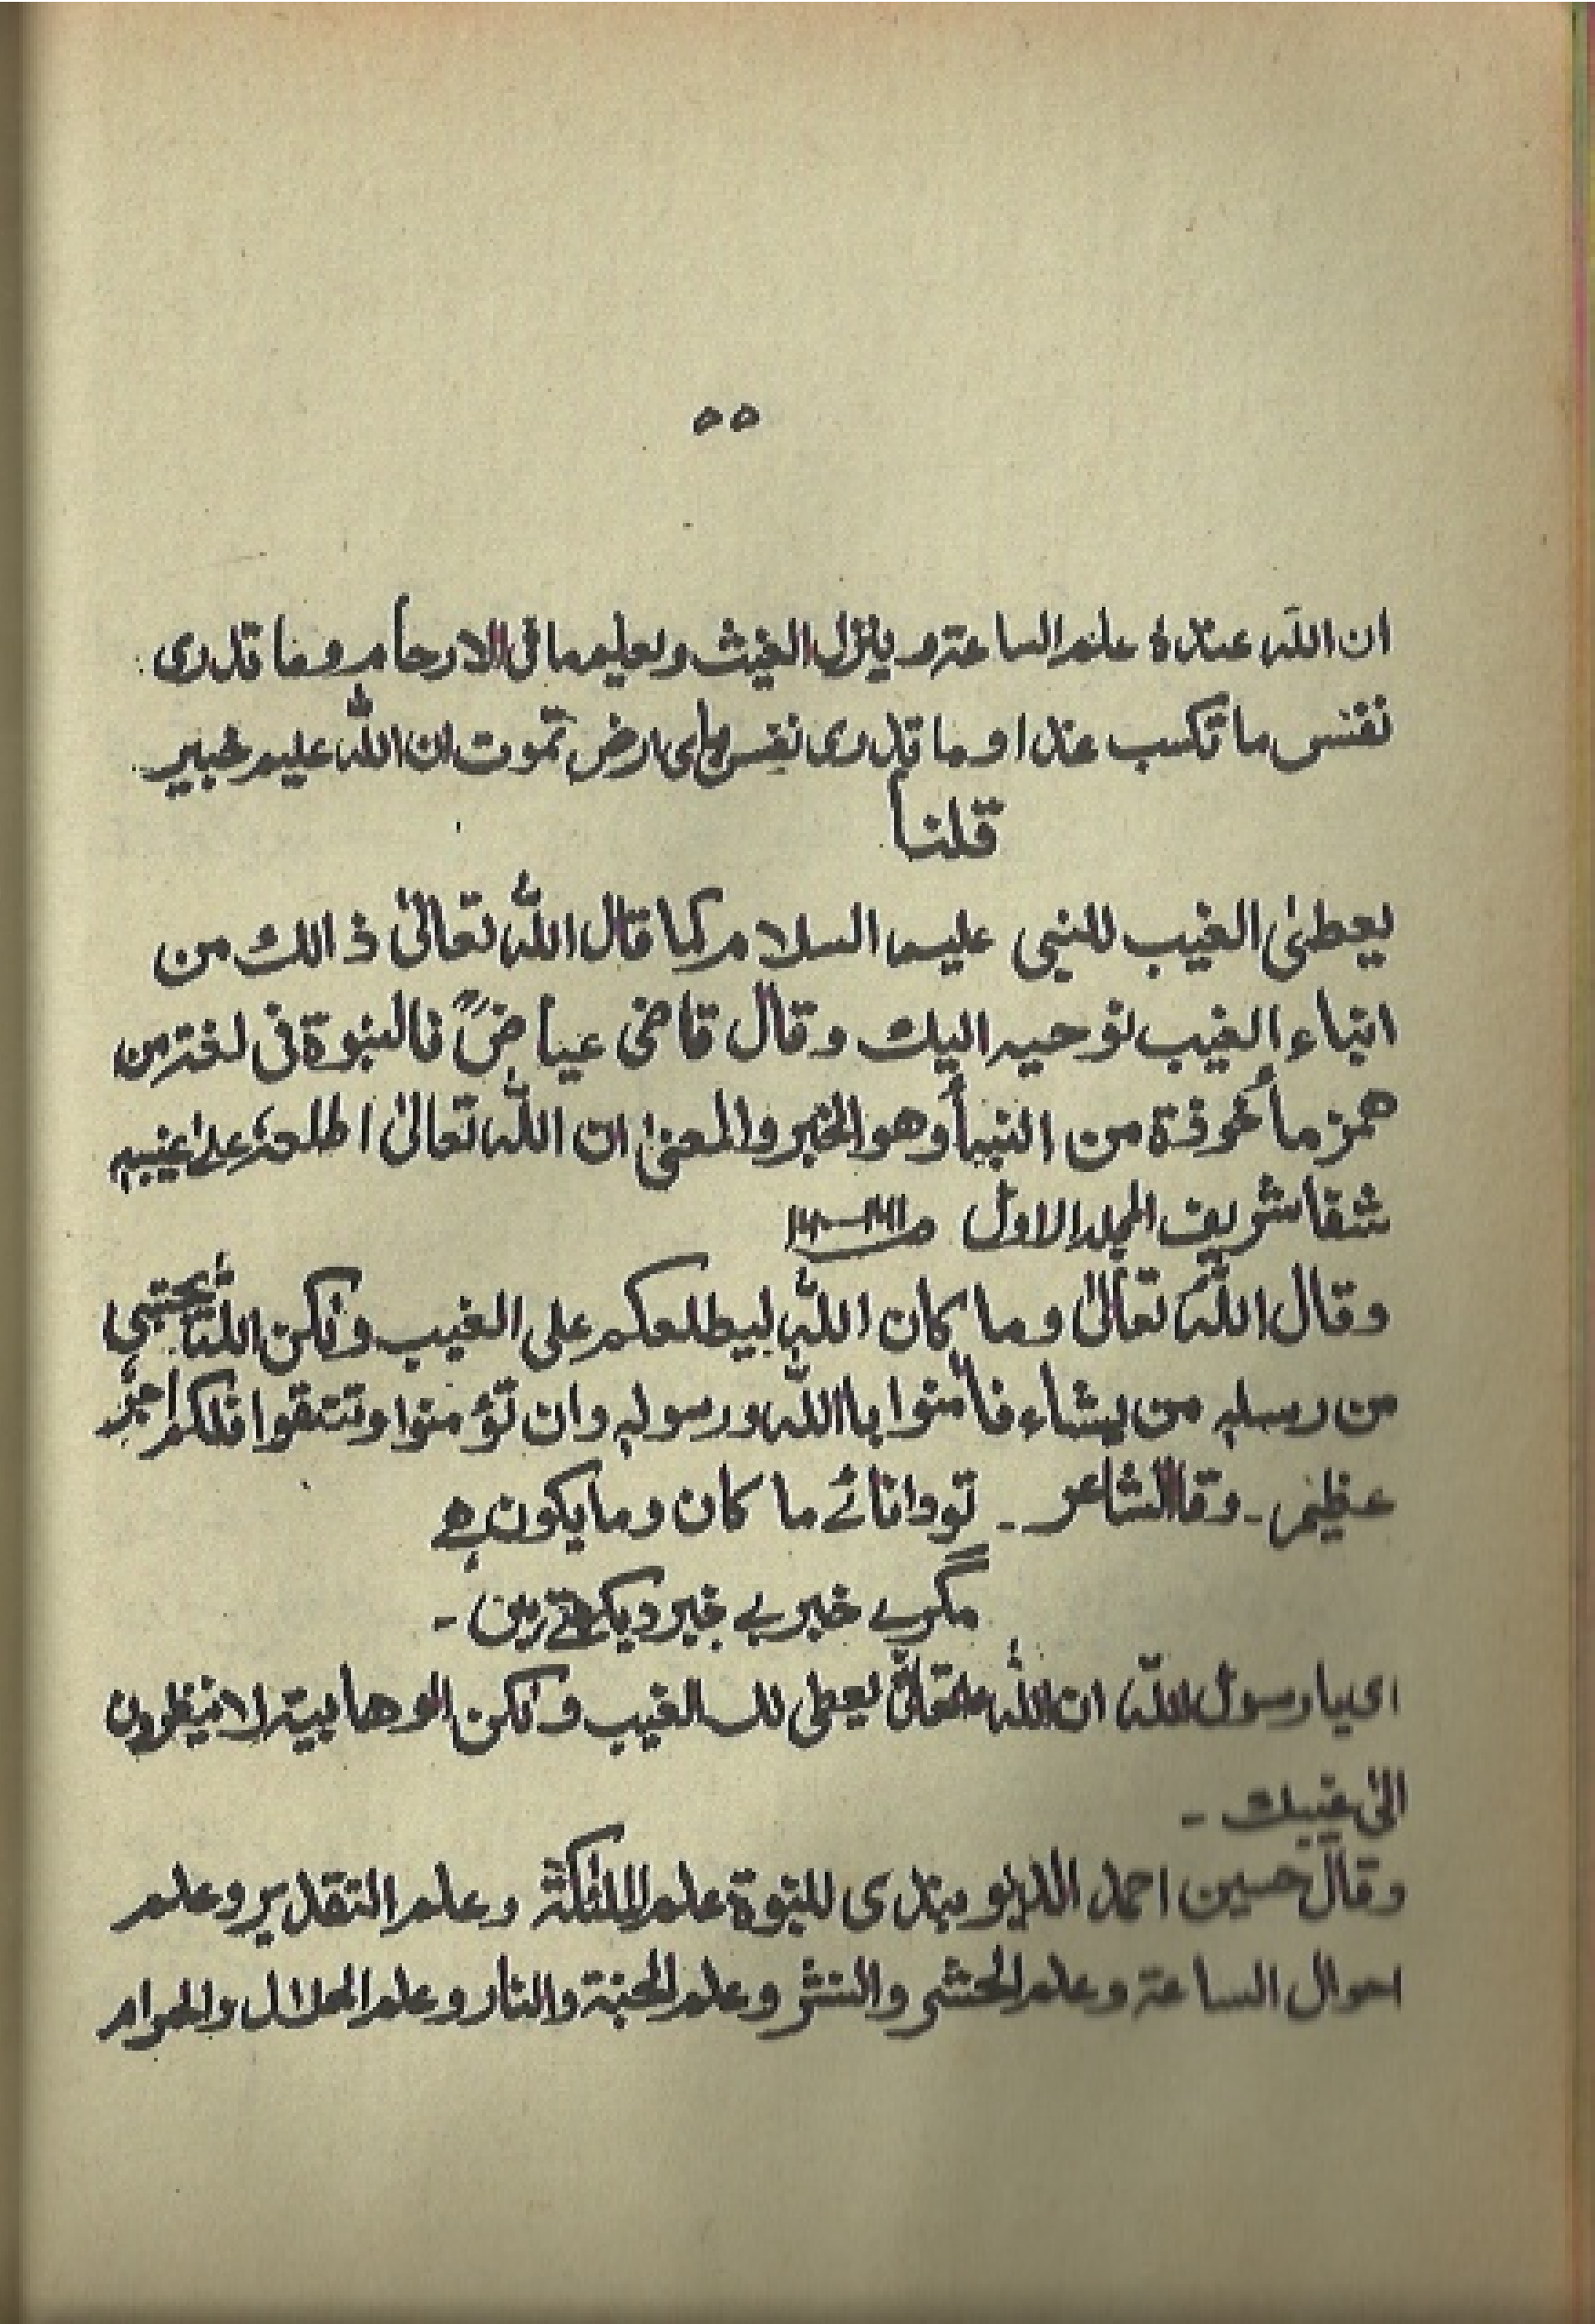 ۵۵
ان اللہ عندہ علم الساعۃ وینزل الغیث ویعلم مافی الارحام وما تدری
نفس ما تکسب غدا وما تدری نفس بای ارض تموت ان اللہ علیم خبیر
قلنا
یعطیٰ الغیب للنبی علیہ السلام کما قال اللہ تعالیٰ ذالک من
انباء الغیب نوحیہ الیک وقال قاضی عیاضؒ فالنبوۃ فی لغۃ من
ھمز مأخوذۃ من النبأ وھو الخبر والمعنیٰ ان اللہ تعالیٰ اطلعہ علیٰ غیبہ
شفا شریف المجلد الاول
وقال اللہ تعالیٰ وما کان اللہ لیطلعکم علی الغیب ولکن اللہ یجتبی
من رسلہ من یشاء فأمنوا باللہ ورسولہ وان تؤمنوا وتتقوا فلکم اجر
عظیم ۔ وقال الشاعر ۔ تو دانائے ما کان وما یکون ہے
مگر بے خبر بے خبر دیکھتے ہیں ۔
ای یا رسول اللہ ان اللہ تعالیٰ یعطی لک الغیب ولکن الوھابیۃ لا ینظرون
الیٰ غیبک ۔
وقال حسین احمد الدیوبندی للنبوۃ علم الملئکۃ وعلم التقدیر وعلم
احوال الساعۃ وعلم الحشر والنشر وعلم الجنۃ والنار وعلم الحلال والحرام